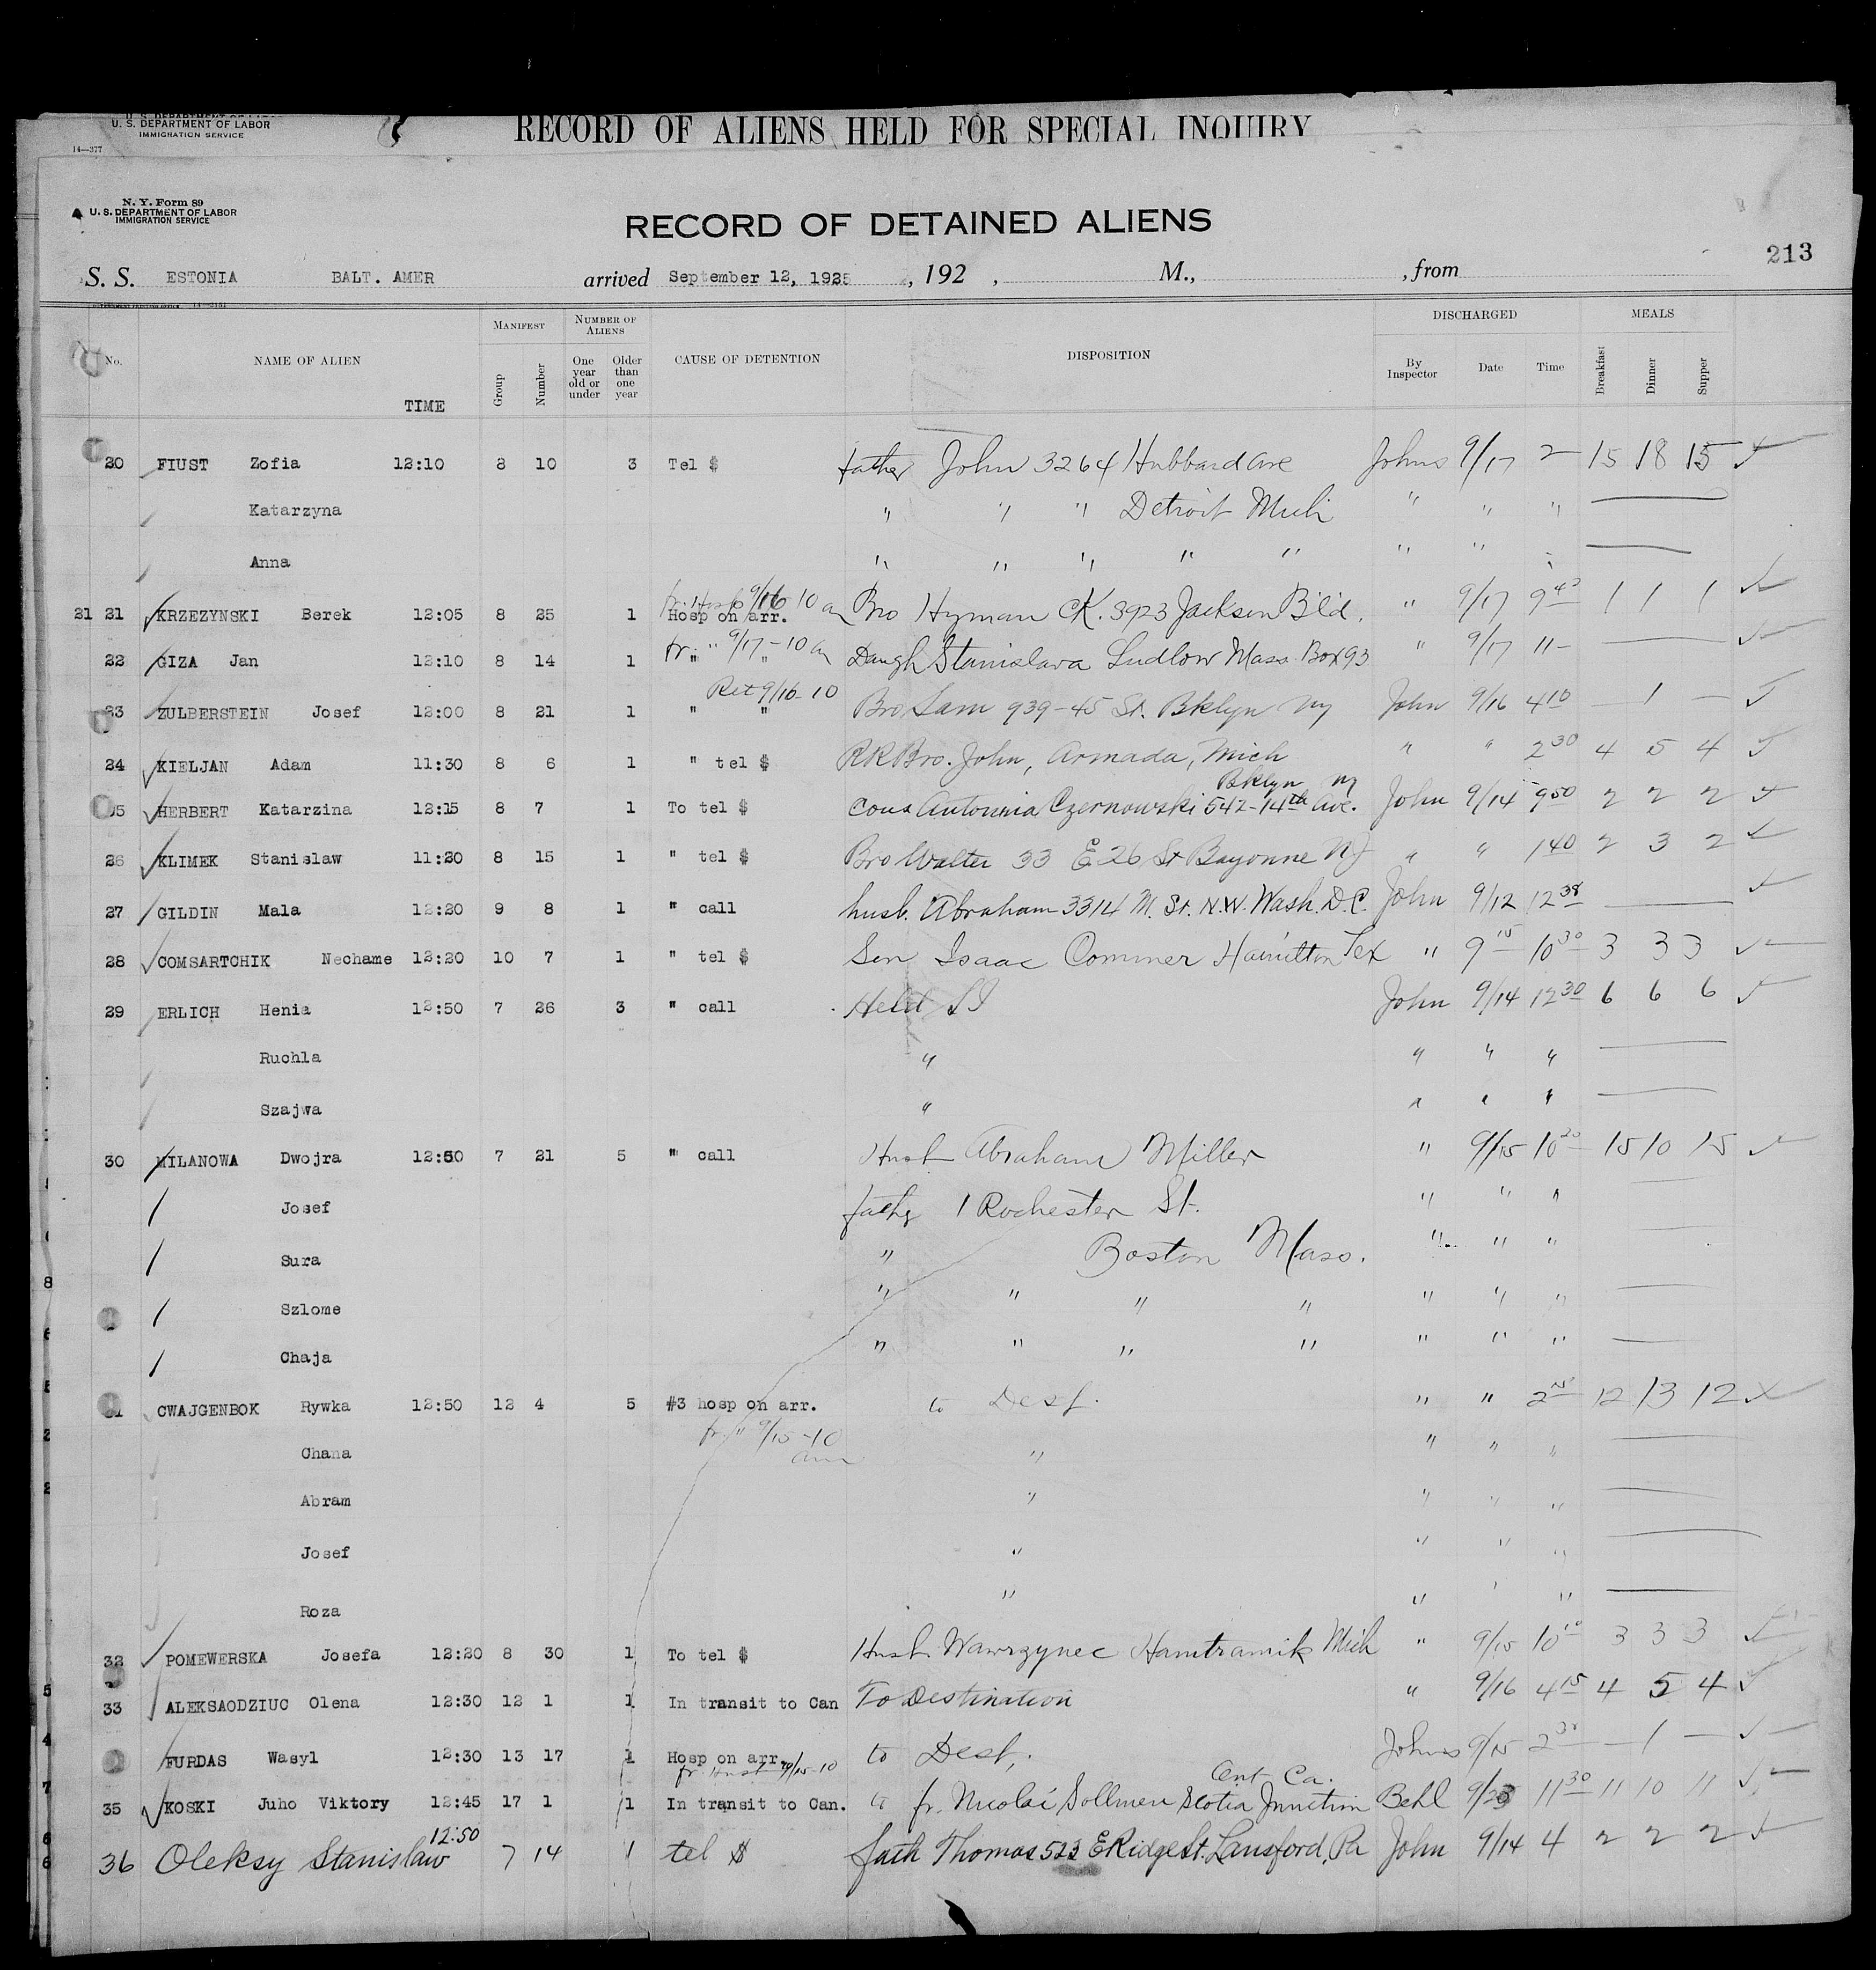 U. S. DEPARTMENT OF LABOR
IMMIGRATION SERVICE
14—377
RECORD OF ALIENS HELD FOR SPECIAL INQUIRY
N. Y. Form 89
U. S. DEPARTMENT OF LABOR
IMMIGRATION SERVICE
RECORD OF DETAINED ALIENS
213
S. S. ESTONIA BALT. AMER arrived September 12, 1925 , 192 , M., , from
No. NAME OF ALIEN TIME MANIFEST Group Number NUMBER OF ALIENS One year old or under Older than one year CAUSE OF DETENTION DISPOSITION DISCHARGED By Inspector Date Time MEALS Breakfast Dinner Supper
20 FIUST Zofia 12:10 8 10 3 Tel $ father John 3264 Hubbard Ave Johns 9/17 2 15 18 15
Katarzyna " " " Detroit Mich " " "
Anna " " " " " " "
fr. Hosp 9/16 10 a
21 21 KRZEZYNSKI Berek 12:05 8 25 1 Hosp on arr. Bro Hyman CK. 3923 Jackson Bld. " 9/17 9 1 1 1
fr. " 9/17 - 10 a
22 GIZA Jan 12:10 8 14 1 " " Daugh Stanislava Ludlow Mass. Box 93 " 9/17 11-
Ret 9/16-10
23 ZULBERSTEIN Josef 12:00 8 21 1 " " Bro Sam 939-45 St. Bklyn Ny John 9/16 4 10 — 1 —
24 KIELJAN Adam 11:30 8 6 1 " tel $ RR Bro. John, Armada, Mich " " 2 30 4 5 4
Bklyn Ny
25 HERBERT Katarzina 12:15 8 7 1 To tel $ cous Antonina Czernowski 542-14th Ave. John 9/14 9 50 2 2 2
26 KLIMEK Stanislaw 11:20 8 15 1 " tel $ Bro Walter 33 E 26 St Bayonne NJ " " 1 40 2 3 2
27 GILDIN Mala 12:20 9 8 1 " call husb. Abraham 3314 M. St. N.W. Wash. D.C. John 9/12 12 38
28 COMSARTCHIK Nechame 12:20 10 7 1 " tel $ Son Isaac Commer Hamilton Tex " 9 15 10 30 3 3 3
29 ERLICH Henia 12:50 7 26 3 " call Held SI John 9/14 12 30 6 6 6
Ruchla " " " "
Szajwa " " " "
30 MILANOWA Dwojra 12:50 7 21 5 " call Husb Abraham Miller " 9/15 10 20 15 10 15
Josef father 1 Rochester St. " " "
Sura " Boston Mass. " " "
Szlome " " " " " " "
Chaja " " " " " " "
31 CWAJGENBOK Rywka 12:50 12 4 5 #3 hosp on arr. to Dest. " " 2 15 12 13 12
fr. " 9/15-10 am
Chana " " " "
Abram " " " "
Josef " " " "
Roza " " " "
32 POMEWERSKA Josefa 12:20 8 30 1 To tel $ Husb. Wawrzynec Hamtramik Mich " 9/15 10 10 3 3 3
33 ALEKSAODZIUC Olena 12:30 12 1 1 In transit to Can To Destination " 9/16 4 15 4 5 4
FURDAS Wasyl 12:30 13 17 1 Hosp on arr. to Dest. Johns 9/15 2 30 — 1 —
fr. 9/15-10 Ont Ca.
35 KOSKI Juho Viktory 12:45 17 1 1 In transit to Can. to fr. Nicolai Sollmen Scotia Junction Behl 9/23 11 30 11 10 11
12:50
36 Oleksy Stanislaw 7 14 1 tel $ fath Thomas 523 E Ridge St. Lansford, Pa John 9/14 4 2 2 2